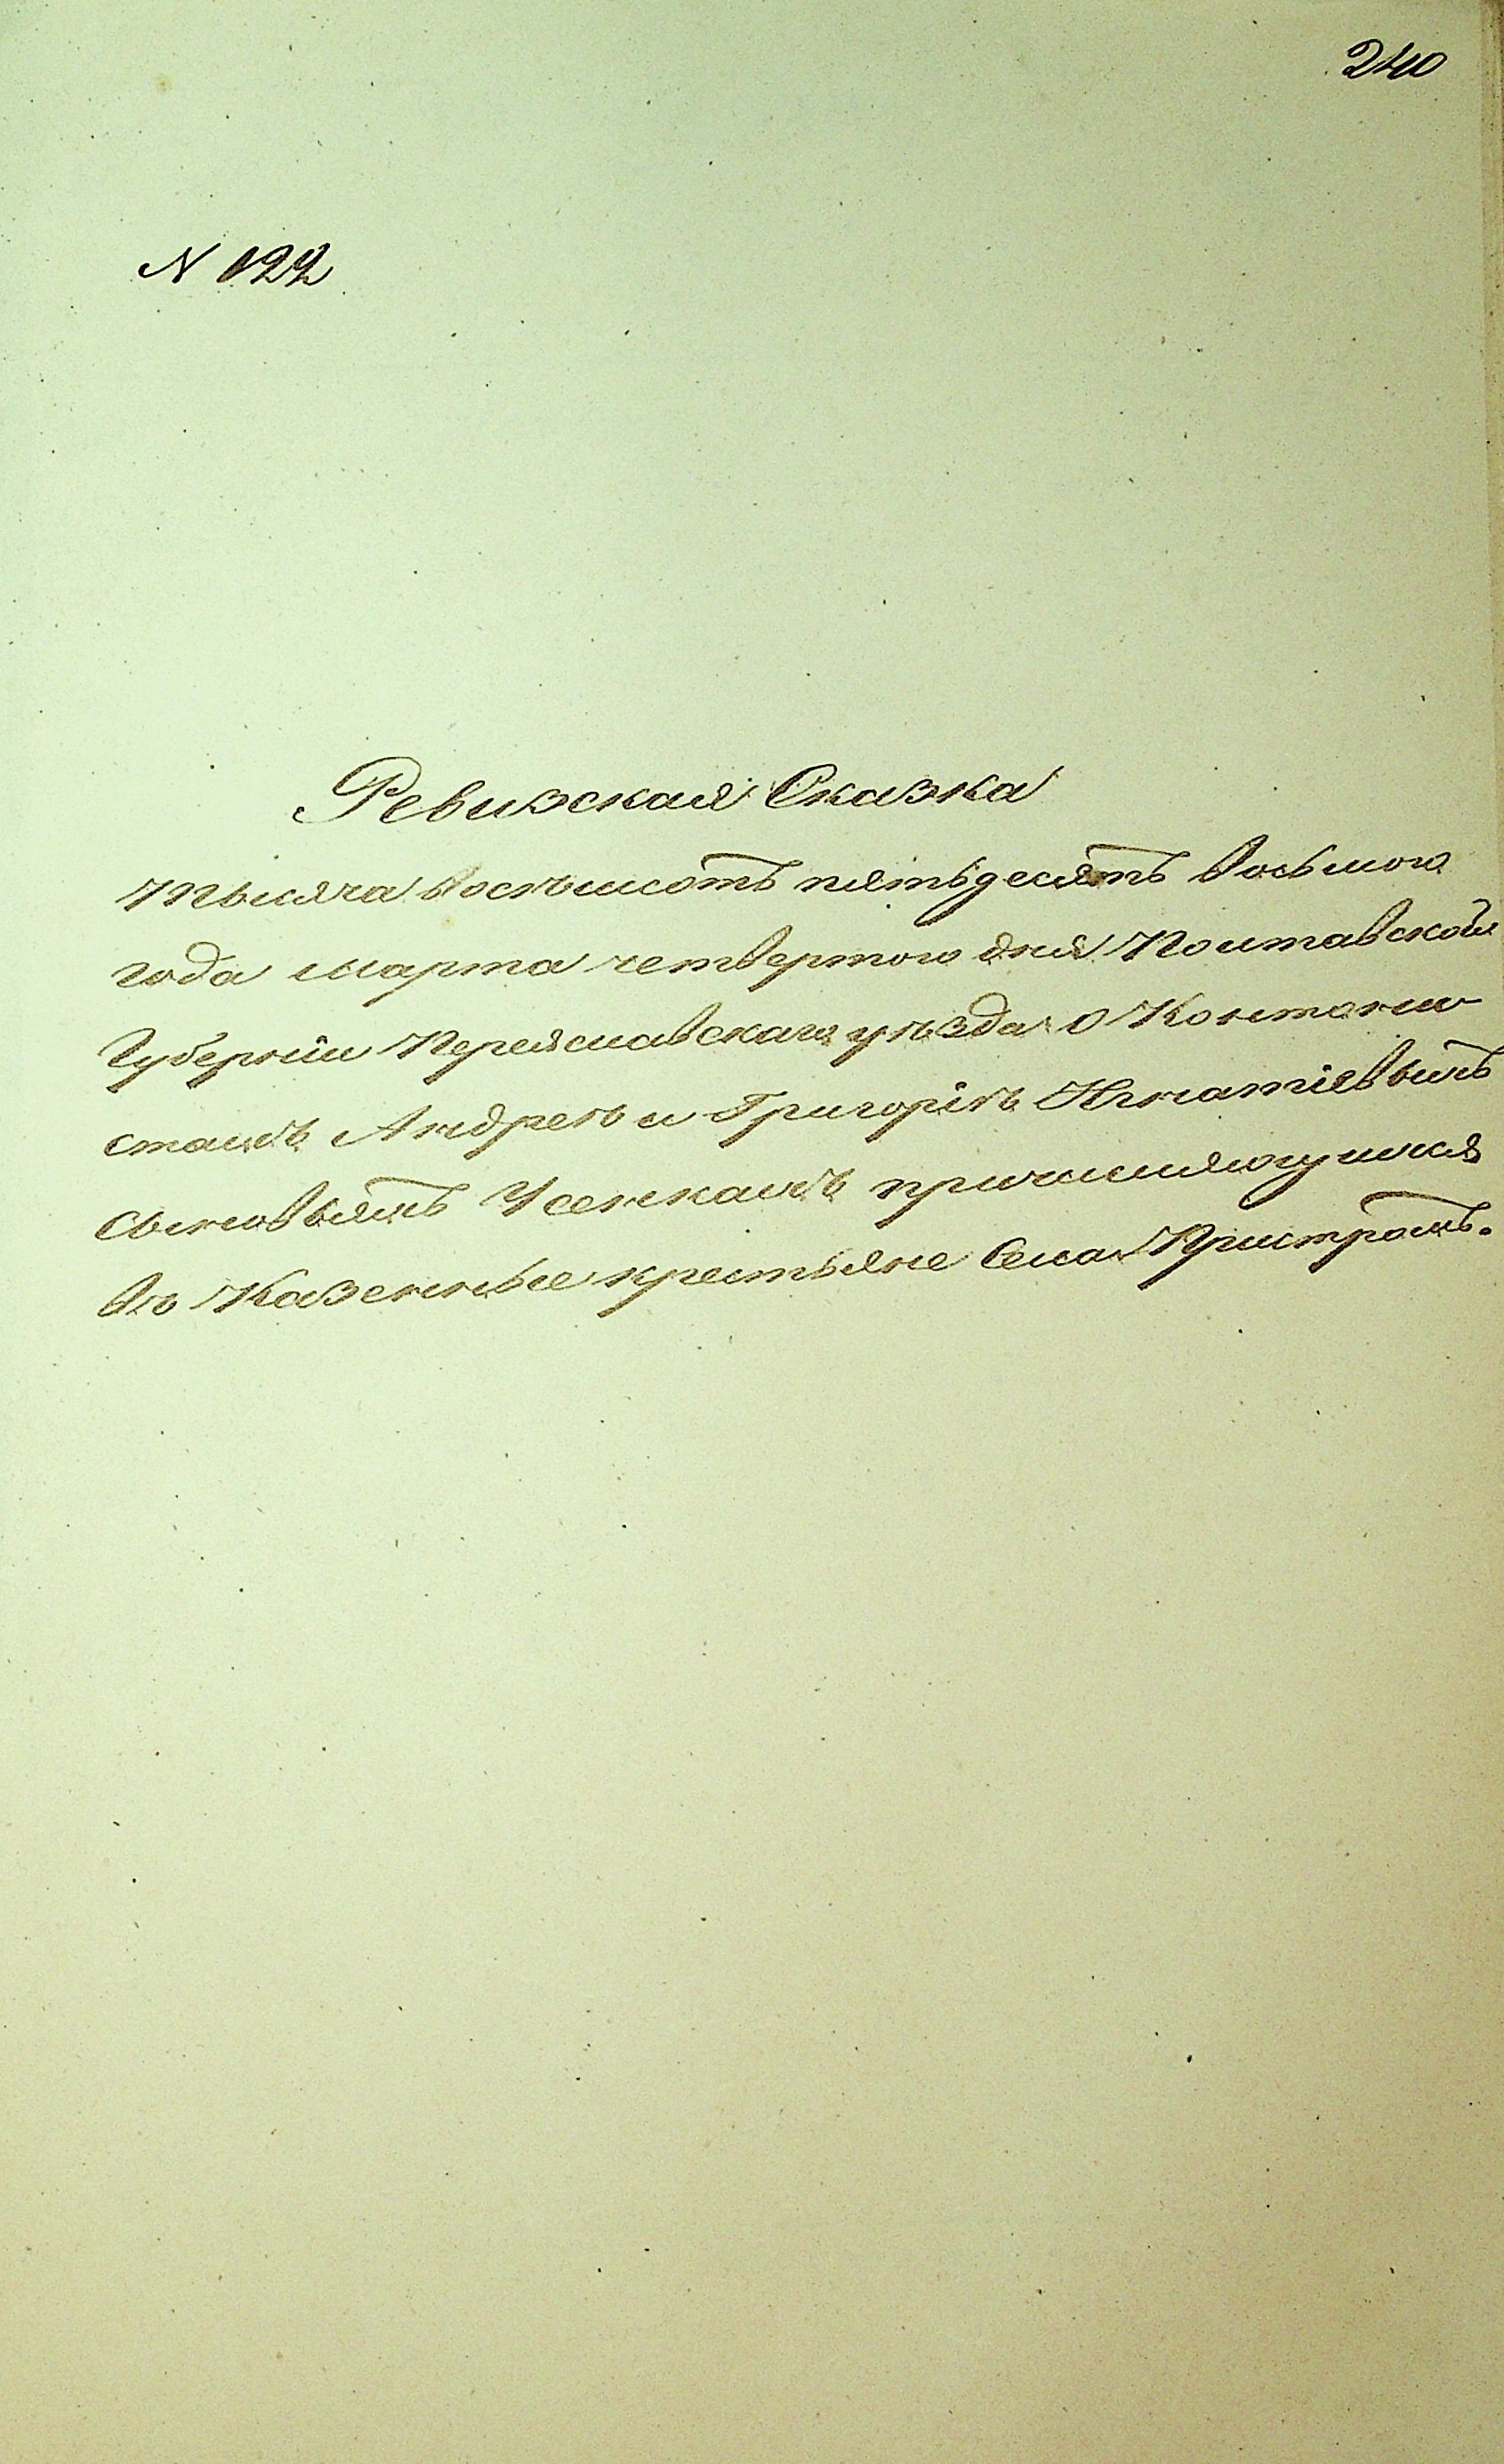 240
N 122
Ревизская Сказка
Тысяча восемьсотъ пятьдесятъ восьмого
года марта четвертого дня Полтавской
Губернии Переяславскаго уѣзда о
стахъ Андреѣ и Григоріѣ Игнатіевыхъ
сыновьяхъ Усенкахъ причисляющихся
въ Казенные крестьяне Села Пристромъ.